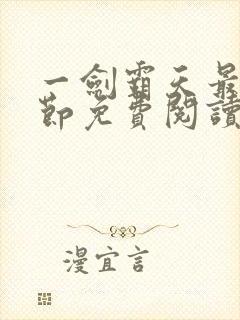 一劍霸天最
節免費閱讀
漫宜言